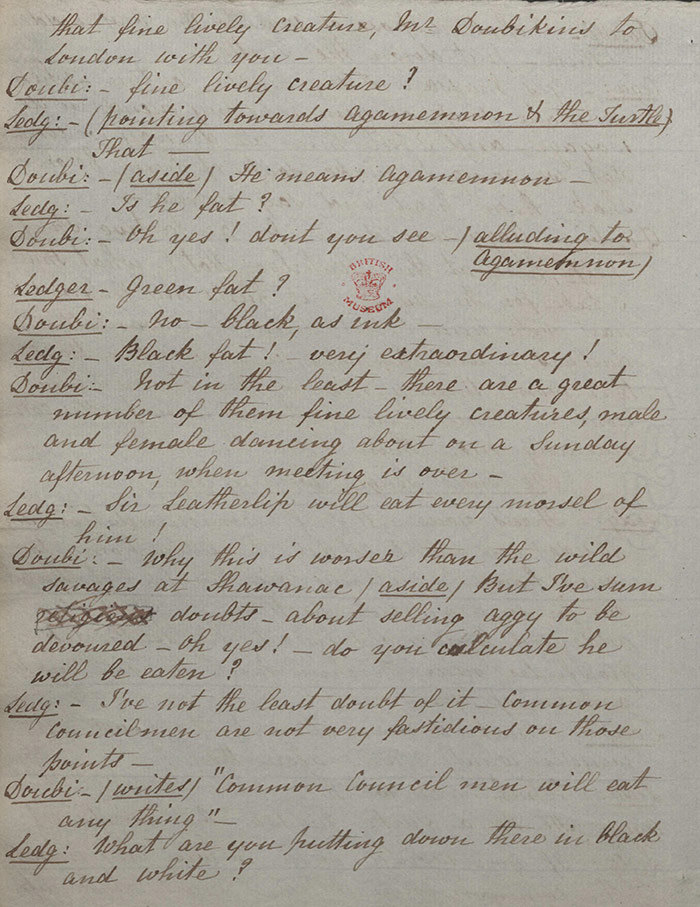 that fine lively creature, Mr Doubikins to
London with you –
Doubi: – fine lively creature?
Ledg: – (pointing towards Agamemnon & the Turtle)
That –
Doubi: – (aside) He means Agamemnon –
Ledg: – Is he fat?
Doubi: – Oh yes! dont you see – (alluding to
Agamemnon)
Ledger – Green fat?
Doubi: – No – black, as ink –
Ledg: – Black fat! – very extraordinary!
Doubi: – Not in the least – there are a great
number of them fine lively creatures, male
and female dancing about on a Sunday
afternoon, when meeting is over –
Ledg: – Sir Leatherlip will eat every morsel of
him!
Doubi: – Why this is worser than the wild
savages at Shawanac (aside) But I've sum
religious doubts – about selling aggy to be
devoured – Oh yes! – do you calculate he
will be eaten?
Ledg: – I've not the least doubt of it – Common
Councilmen are not very fastidious on those
points –
Doubi – (writes) "Common Council men will eat
any thing" –
Ledg: What are you putting down there in black
and white?
BRITISH
MUSEUM